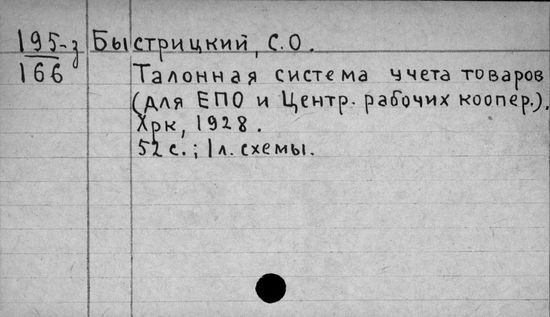 195-з Быстрицкий, С.О.
166 Талонная система учета товаров
(для ЕПО и Центр. рабочих коопер.).
Хрк, 1928.
52 с.; 1 л. схемы.